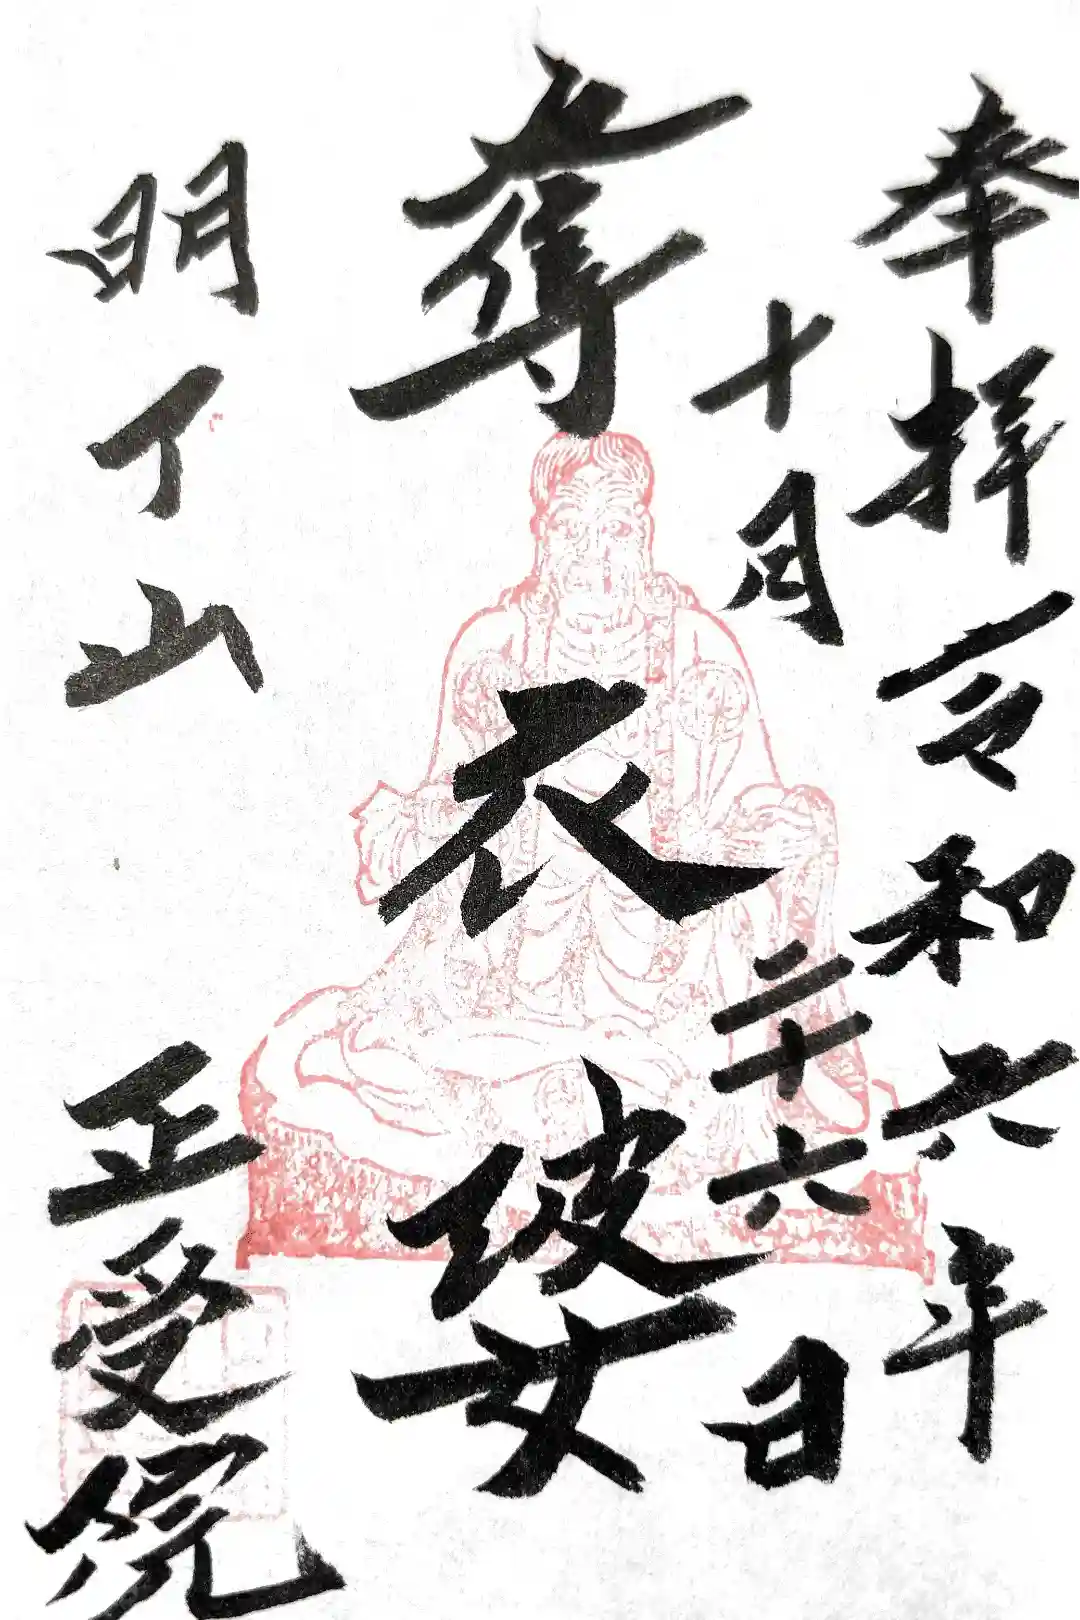 奉拝 令和六年
十月二十六日
奪衣婆
明了山 正受院